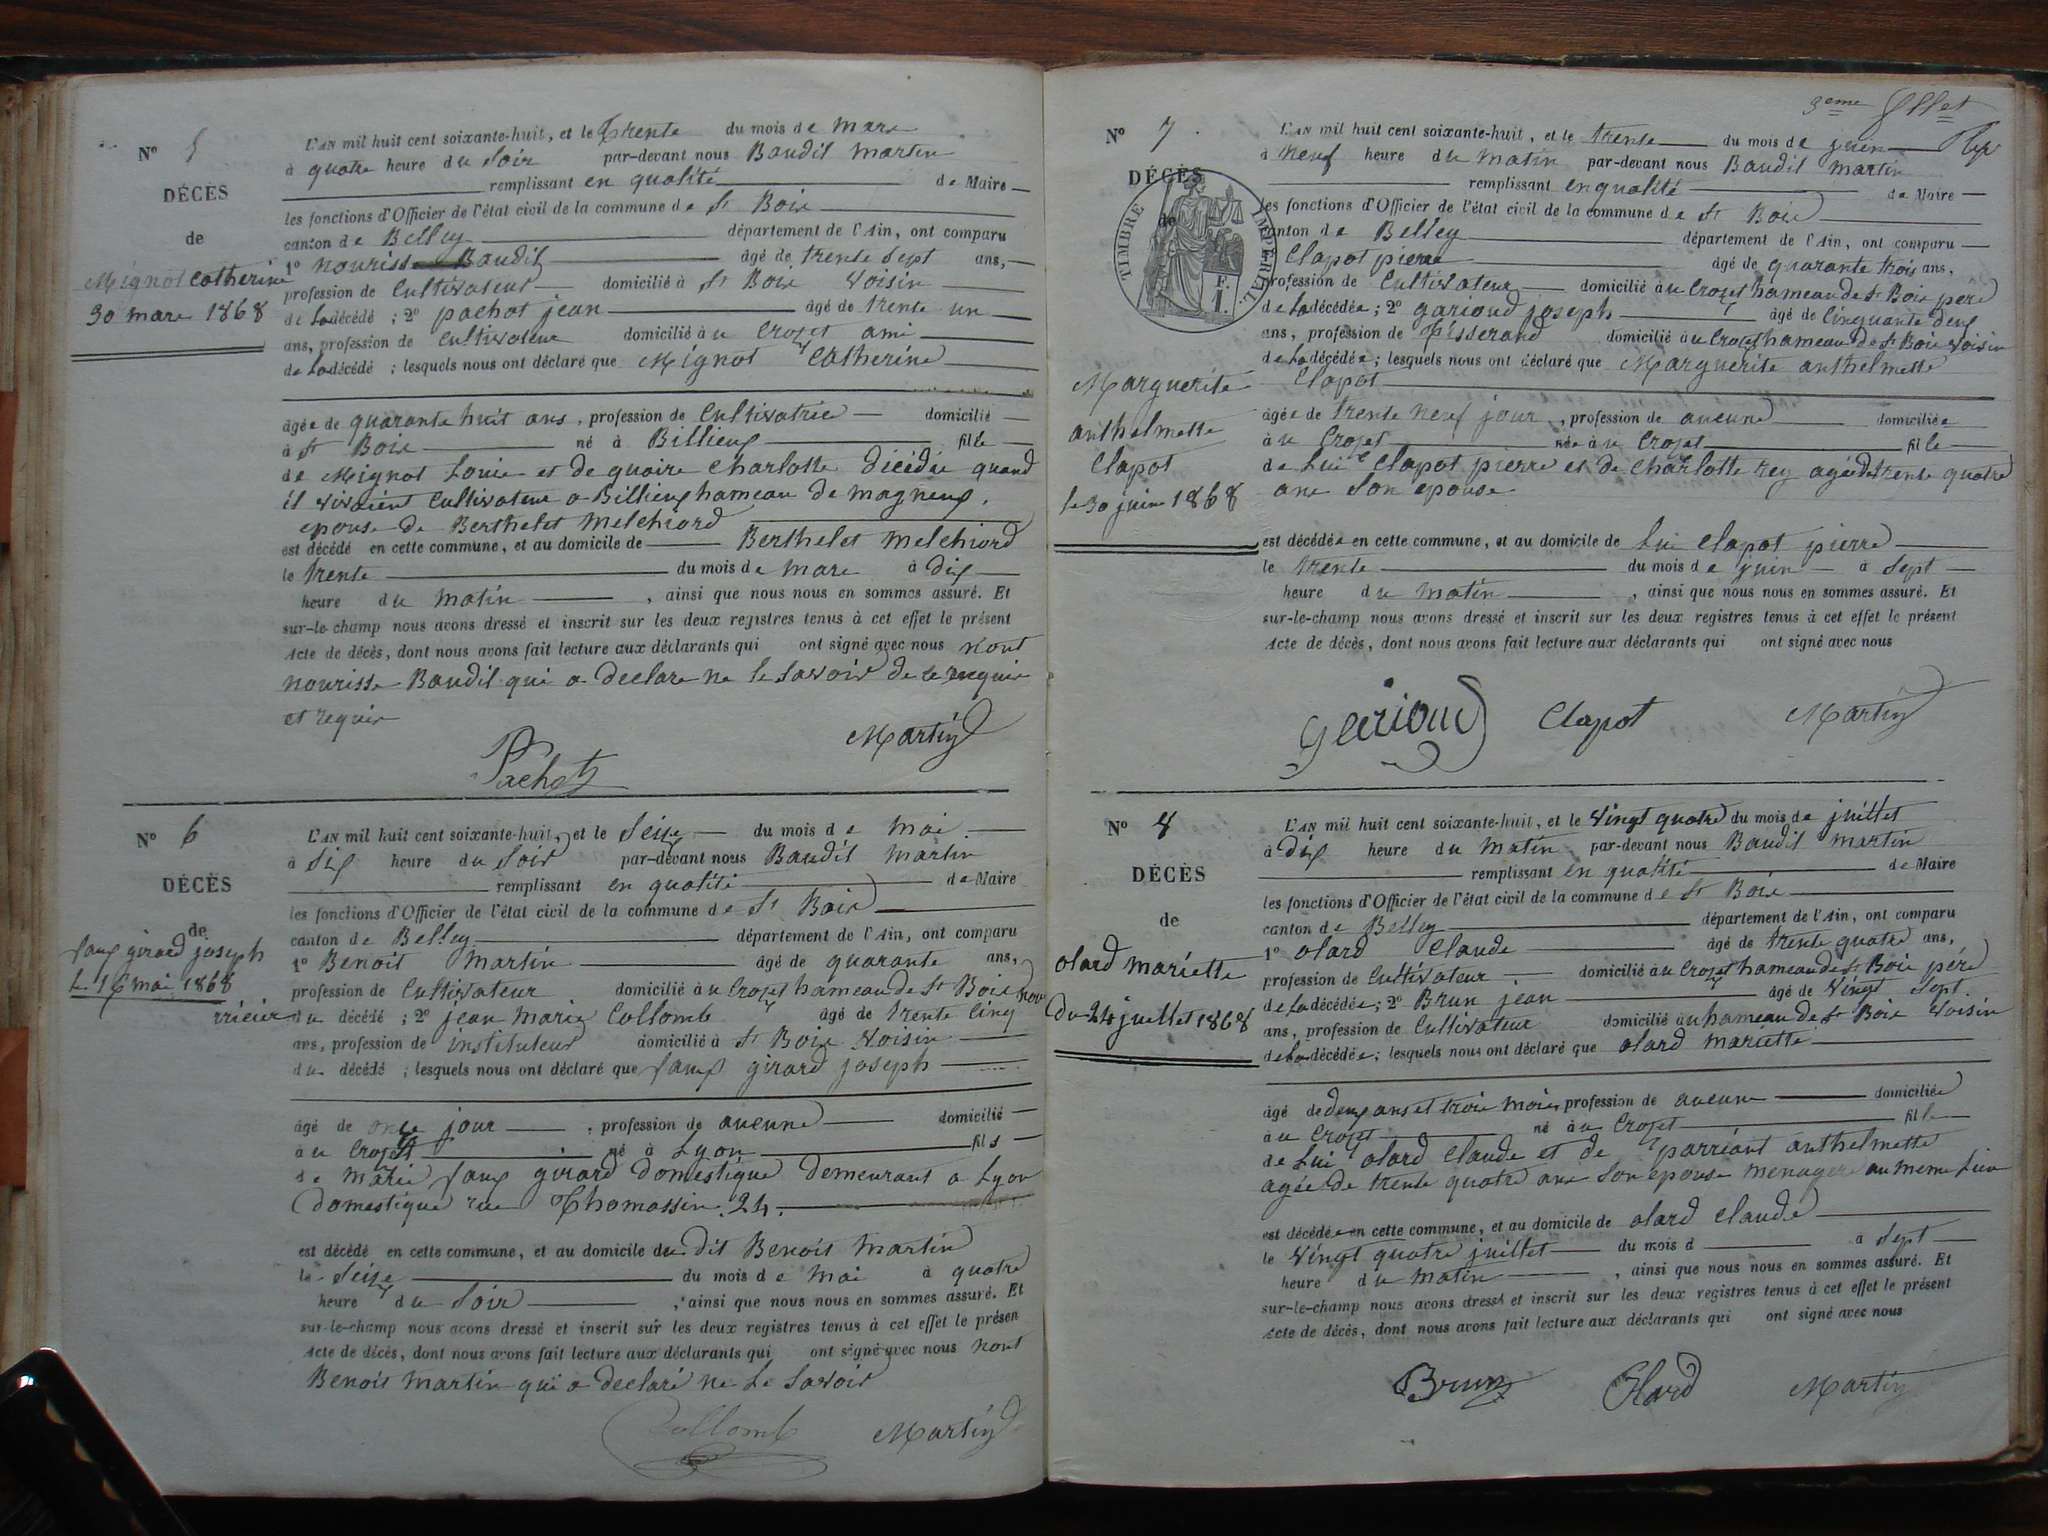 N° 5
DÉCÈS
de
Mignot Catherine
30 mars 1868
L'AN mil huit cent soixante-huit, et le trente du mois de mars
à quatre heure du soir par-devant nous Baudit martin
remplissant en qualité de Maire
les fonctions d'Officier de l'état civil de la commune de St Bois
canton de Belley département de l'Ain, ont comparu
1° nourisse Baudit âgé de trente sept ans,
profession de Cultivateur domicilié à St Bois Voisin
de La décédé ; 2° pachot jean âgé de trente un
ans, profession de Cultivateur domicilié à u Crozet ami
de La décédé ; lesquels nous ont déclaré que Mignot Catherine
âgée de quarante huit ans, profession de Cultivatrice domicilié
à St Bois né à Billieux fille
de Mignot Louis et de quaire Charlotte décédée quand
il vivaient Cultivateur a Billieux hameau de magneux,
epouse de Berthelet Melchiord
est décédé en cette commune, et au domicile de Berthelet Melchiord
le trente du mois de mars à dix
heure du matin, ainsi que nous nous en sommes assuré. Et
sur-le-champ nous avons dressé et inscrit sur les deux registres tenus à cet effet le présent
Acte de décès, dont nous avons fait lecture aux déclarants qui ont signé avec nous nont
nourisse Baudit qui a declare ne le savoir de ce requis
et requis
Pachot Martin
N° 6
DÉCÈS
de
faux girard joseph
le 16 mai 1868
L'AN mil huit cent soixante-huit, et le Seize du mois de Mai
à Six heure du Soir par-devant nous Baudit Martin
remplissant en qualité de Maire
les fonctions d'Officier de l'état civil de la commune de St Bois
canton de Belley département de l'Ain, ont comparu
1° Benoit Martin âgé de quarante ans,
profession de Cultivateur domicilié à u Crozet hameau de St Bois nou
rricier du décédé ; 2° jean Marie Collomb âgé de trente Cinq
ans, profession de instituteur domicilié à St Bois Voisin
du décédé ; lesquels nous ont déclaré que faux girard joseph
âgé de onze jour, profession de aucune domicilié
à u Crozet né à Lyon fils
de Marie faux girard domestique demeurant a Lyon
Domestique rue Thomassin 24.
est décédé en cette commune, et au domicile du dit Benoit Martin
le Seize du mois de Mai à quatre
heure du Soir, ainsi que nous nous en sommes assuré. Et
sur-le-champ nous avons dressé et inscrit sur les deux registres tenus à cet effet le présen
Acte de décès, dont nous avons fait lecture aux déclarants qui ont signé avec nous nont
Benoit Martin qui a declaré ne Le Savoir
Collomb Martin
3eme
N° 7
DÉCÈS
de
TIMBRE IMPÉRIAL
F.
1.
Marguerite
anthelmette
Clapot
le 30 juin 1868
L'AN mil huit cent soixante-huit, et le trente du mois de juin
à Neuf heure du Matin par-devant nous Baudit Martin
remplissant en qualité de Maire
les fonctions d'Officier de l'état civil de la commune de St Bois
canton de Belley département de l'Ain, ont comparu
Clapot pierre âgé de quarante trois ans,
profession de Cultivateur domicilié à u Crozet hameau de St Bois père
de La décédée ; 2° garioud joseph âgé de Cinquante deux
ans, profession de tisserand domicilié à u Crozet hameau de St Bois Voisin
de La décédée ; lesquels nous ont déclaré que Marguerite anthelmette
Clapot
âgée de trente neuf jour, profession de aucune domiciliée
à u Crozet née à u Crozet fille
de Lui Clapot pierre et de Charlotte rey agée de trente quatre
ans Son epouse
est décédée en cette commune, et au domicile de Lui Clapot pierre
le trente du mois de juin à sept
heure du Matin, ainsi que nous nous en sommes assuré. Et
sur-le-champ nous avons dressé et inscrit sur les deux registres tenus à cet effet le présent
Acte de décès, dont nous avons fait lecture aux déclarants qui ont signé avec nous
Garioud Clapot Martin
N° 8
DÉCÈS
de
olard mariette
Du 24 juillet 1868
L'AN mil huit cent soixante-huit, et le Vingt quatre du mois de juillet
à dix heure du Matin par-devant nous Baudit Martin
remplissant en qualité de Maire
les fonctions d'Officier de l'état civil de la commune de St Bois
canton de Belley département de l'Ain, ont comparu
1° olard Claude âgé de trente quatre ans,
profession de Cultivateur domicilié à u Crozet hameau de St Bois père
de La décédée ; 2° Brun jean âgé de Vingt Sept
ans, profession de Cultivateur domicilié à u hameau de St Bois Voisin
de La décédée ; lesquels nous ont déclaré que olard mariette
âgé de deux ans et trois mois profession de aucune domiciliée
à u Crozet né à u Crozet fille
de Lui olard Claude et de parriant anthelmette
agée de trente quatre ans Son epouse menagere au meme Lieu
est décédée en cette commune, et au domicile de olard Claude
le Vingt quatre juillet du mois d à sept
heure du Matin, ainsi que nous nous en sommes assuré. Et
sur-le-champ nous avons dressé et inscrit sur les deux registres tenus à cet effet le présent
Acte de décès, dont nous avons fait lecture aux déclarants qui ont signé avec nous
Brun Olard Martin